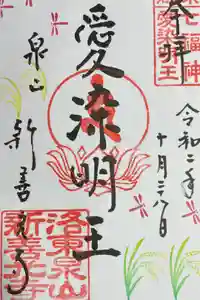 奉拝
令和二年
十月二十八日
愛染明王
泉山
新善光寺
洛東泉山
新善光寺